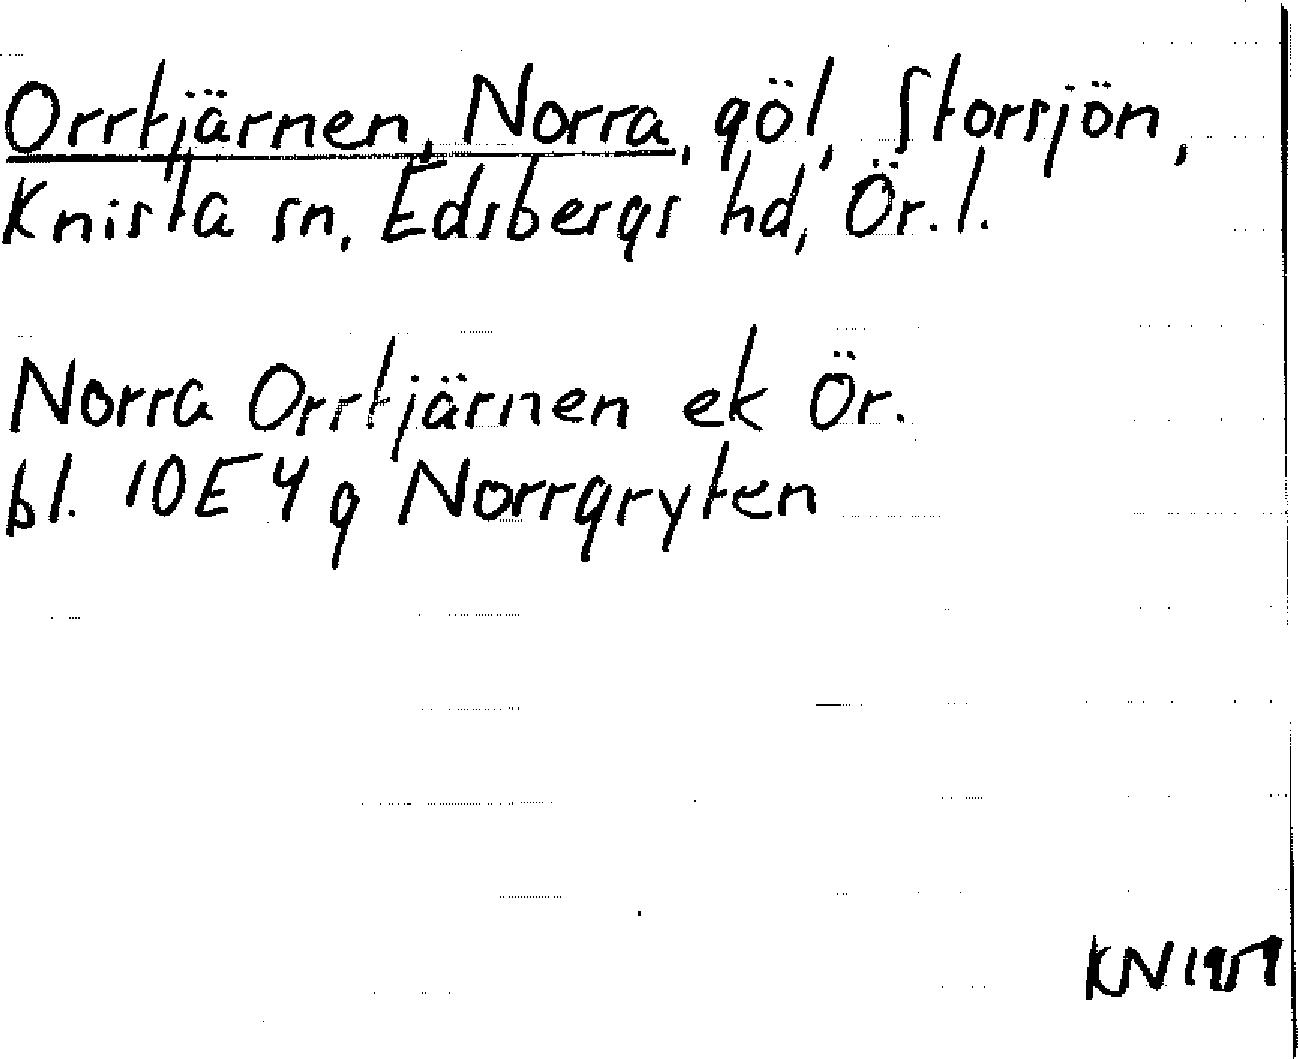 Orrtjärnen, Norra, göl, Storsjön,
Knista sn, Edsbergs hd, Ör. l.
Norra Orrtjärnen ek Ör.
bl. 10E 4 g Norrgryten
KN 1959